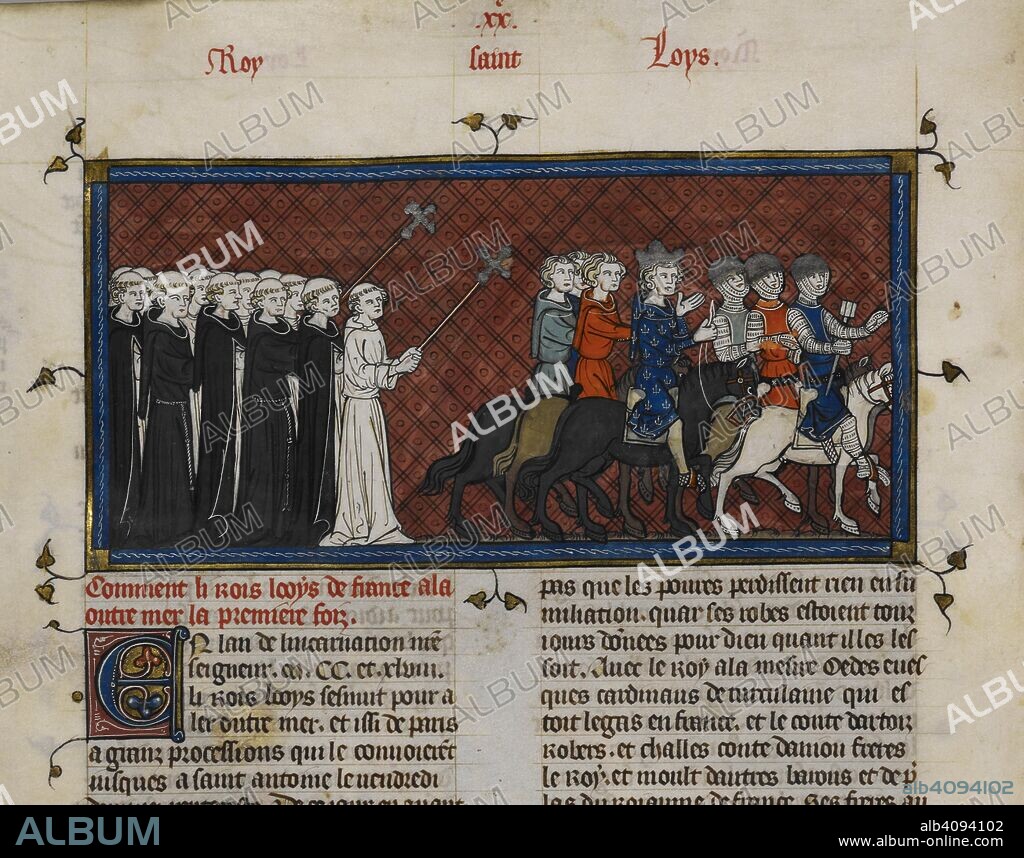 .xx.
Roy saint Loys.
Comment li Rois looys de france ala
outre mer la premiere foiz.
En lan de lincarnation nrē
seigneur. m. CC. et. xlviii.
li Rois looys sesmut pour a
ler doutre mer. et issi de paris
a granz processions qui le convoierēt
iusques a saint antoine le vendredi
pas que lez poures perdissent rien en su
miliation. quar ses robes estoient touz
iours dōnees pour dieu quant il les les
soit. Avec le Roy ala mesire Oedes eves
ques cardinaus de turculaine qui es
toit legas en france. et le conte dartoiz
Robers. et challes conte daniou freres
le Roy. et moult dautres barons et de p
las du Roiaume de france. Ses freres au
ALBUM
alb4094102
ALBUM
alb4094102
album-online.com